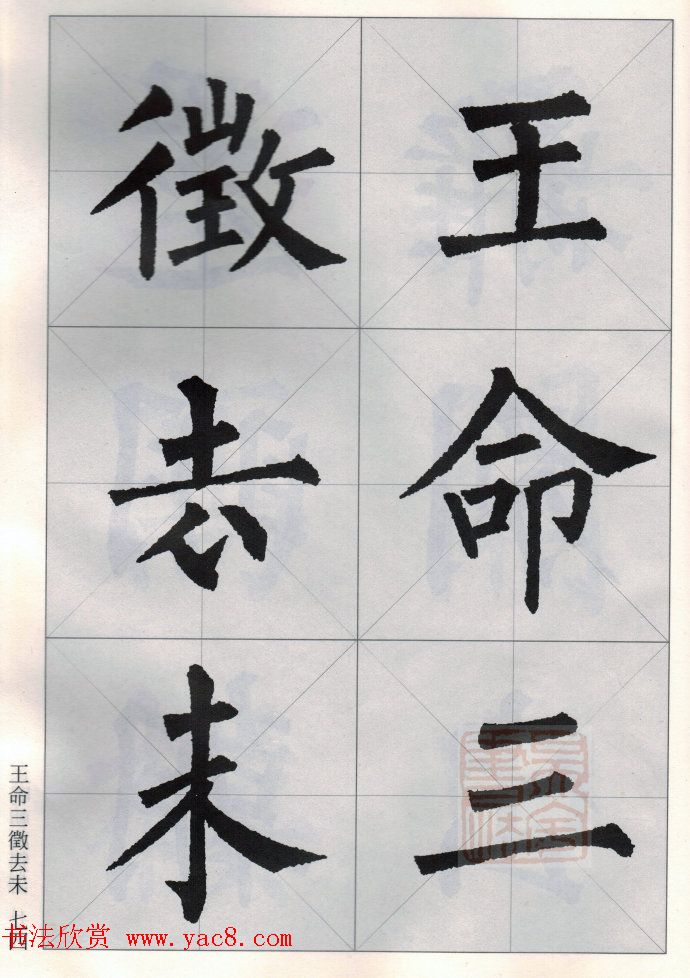 王命三
徵去未
王命三徵去未 七四
书法欣赏 www.yac8.com